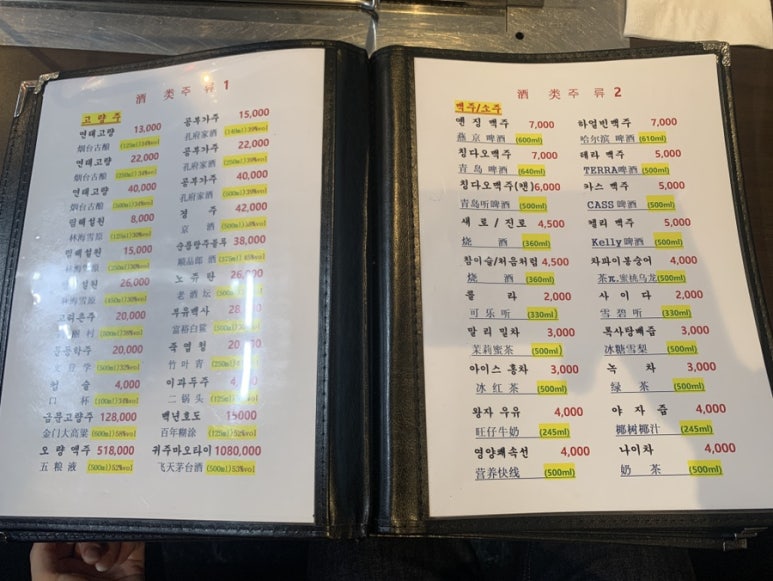 酒 类 주 류 1
고 량 주
연태고량 13,000
烟台古酿 (125ml)34%vol
연태고량 22,000
烟台古酿 (250ml)34%vol
연태고량 40,000
烟台古酿 (500ml)34%vol
림해설원 8,000
林海雪原
림해설원 15,000
林海雪原
설원 26,000
林海雪原 (450ml)30%vol
고려촌주 20,000
村 (500ml)
문등학주 20,000
文 登 学 (500ml)32%vol
컵 술 4,000
口 杯 (100ml)34%vol
금문고량주 128,000
金门大高粱 (600ml)58%vol
오 량 액주 518,000
五 粮 液 (500ml)52%vol
공부가주 15,000
孔府家酒
공부가주 22,000
孔府家酒 (250ml)39%vol
공부가주 40,000
孔府家酒 (500ml)39%vol
경 주 42,000
京 酒 (500ml)38%vol
38,000
顺品郎 酒 (475ml)45%vol
노 쥬 탄 26,000
老 酒 坛
부유백사
富裕白鲨
죽 엽 청
竹 叶 青
이과두주
二 锅 头
백년호도 15000
百年糊涂
귀주마오타이 1080,000
飞天茅台酒 (500ml)53%vol
酒 类 주 류 2
맥주/소주
옌 징 맥주 7,000
燕 京 啤酒 (600ml)
칭다오맥주 7,000
青 岛 啤酒 (640ml)
칭다오맥주(캔) 6,000
青岛听啤酒 (500ml)
새 로 / 진로 4,500
烧 酒 (360ml)
참이슬/처음처럼 4,500
烧 酒 (360ml)
콜 라 2,000
可 乐 听 (330ml)
말 리 밀차 3,000
茉莉蜜茶 (500ml)
아이스 홍차 3,000
冰 红 茶 (500ml)
왕자 우유 4,000
旺仔牛奶 (245ml)
영양쾌속선 4,000
营养快线 (500ml)
하얼빈맥주 7,000
哈尔滨 啤酒 (610ml)
테라 맥주 5,000
TERRA啤酒 (500ml)
카스 맥주 5,000
CASS 啤酒 (500ml)
켈리 맥주 5,000
Kelly啤酒 (500ml)
차파이봉숭어 4,000
茶π.蜜桃乌龙 (500ml)
사 이 다 2,000
雪 碧 听 (330ml)
복사탕배즙 3,000
冰糖雪梨 (500ml)
녹 차 3,000
绿 茶 (500ml)
야 자 즙 4,000
椰树椰汁 (245ml)
나이차 4,000
奶 茶 (500ml)